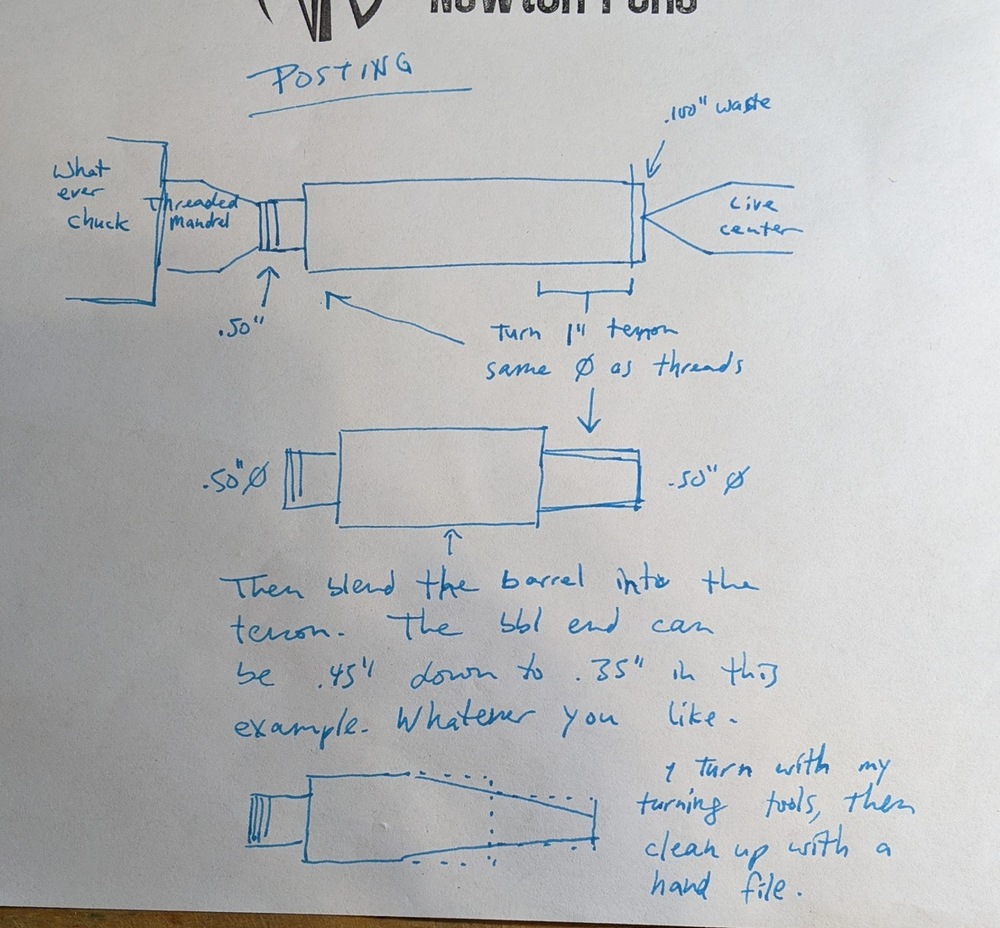 Newton Pens
POSTING
.100" waste
What
ever
chuck
Threaded
Mandrel
Live
center
.50"
Turn 1" tenon
same Ø as threads
.50" Ø
.50" Ø
Then blend the barrel into the
tenon. The bbl end can
be .45" down to .35" in this
example. Whatever you like.
I turn with my
turning tools, then
clean up with a
hand file.